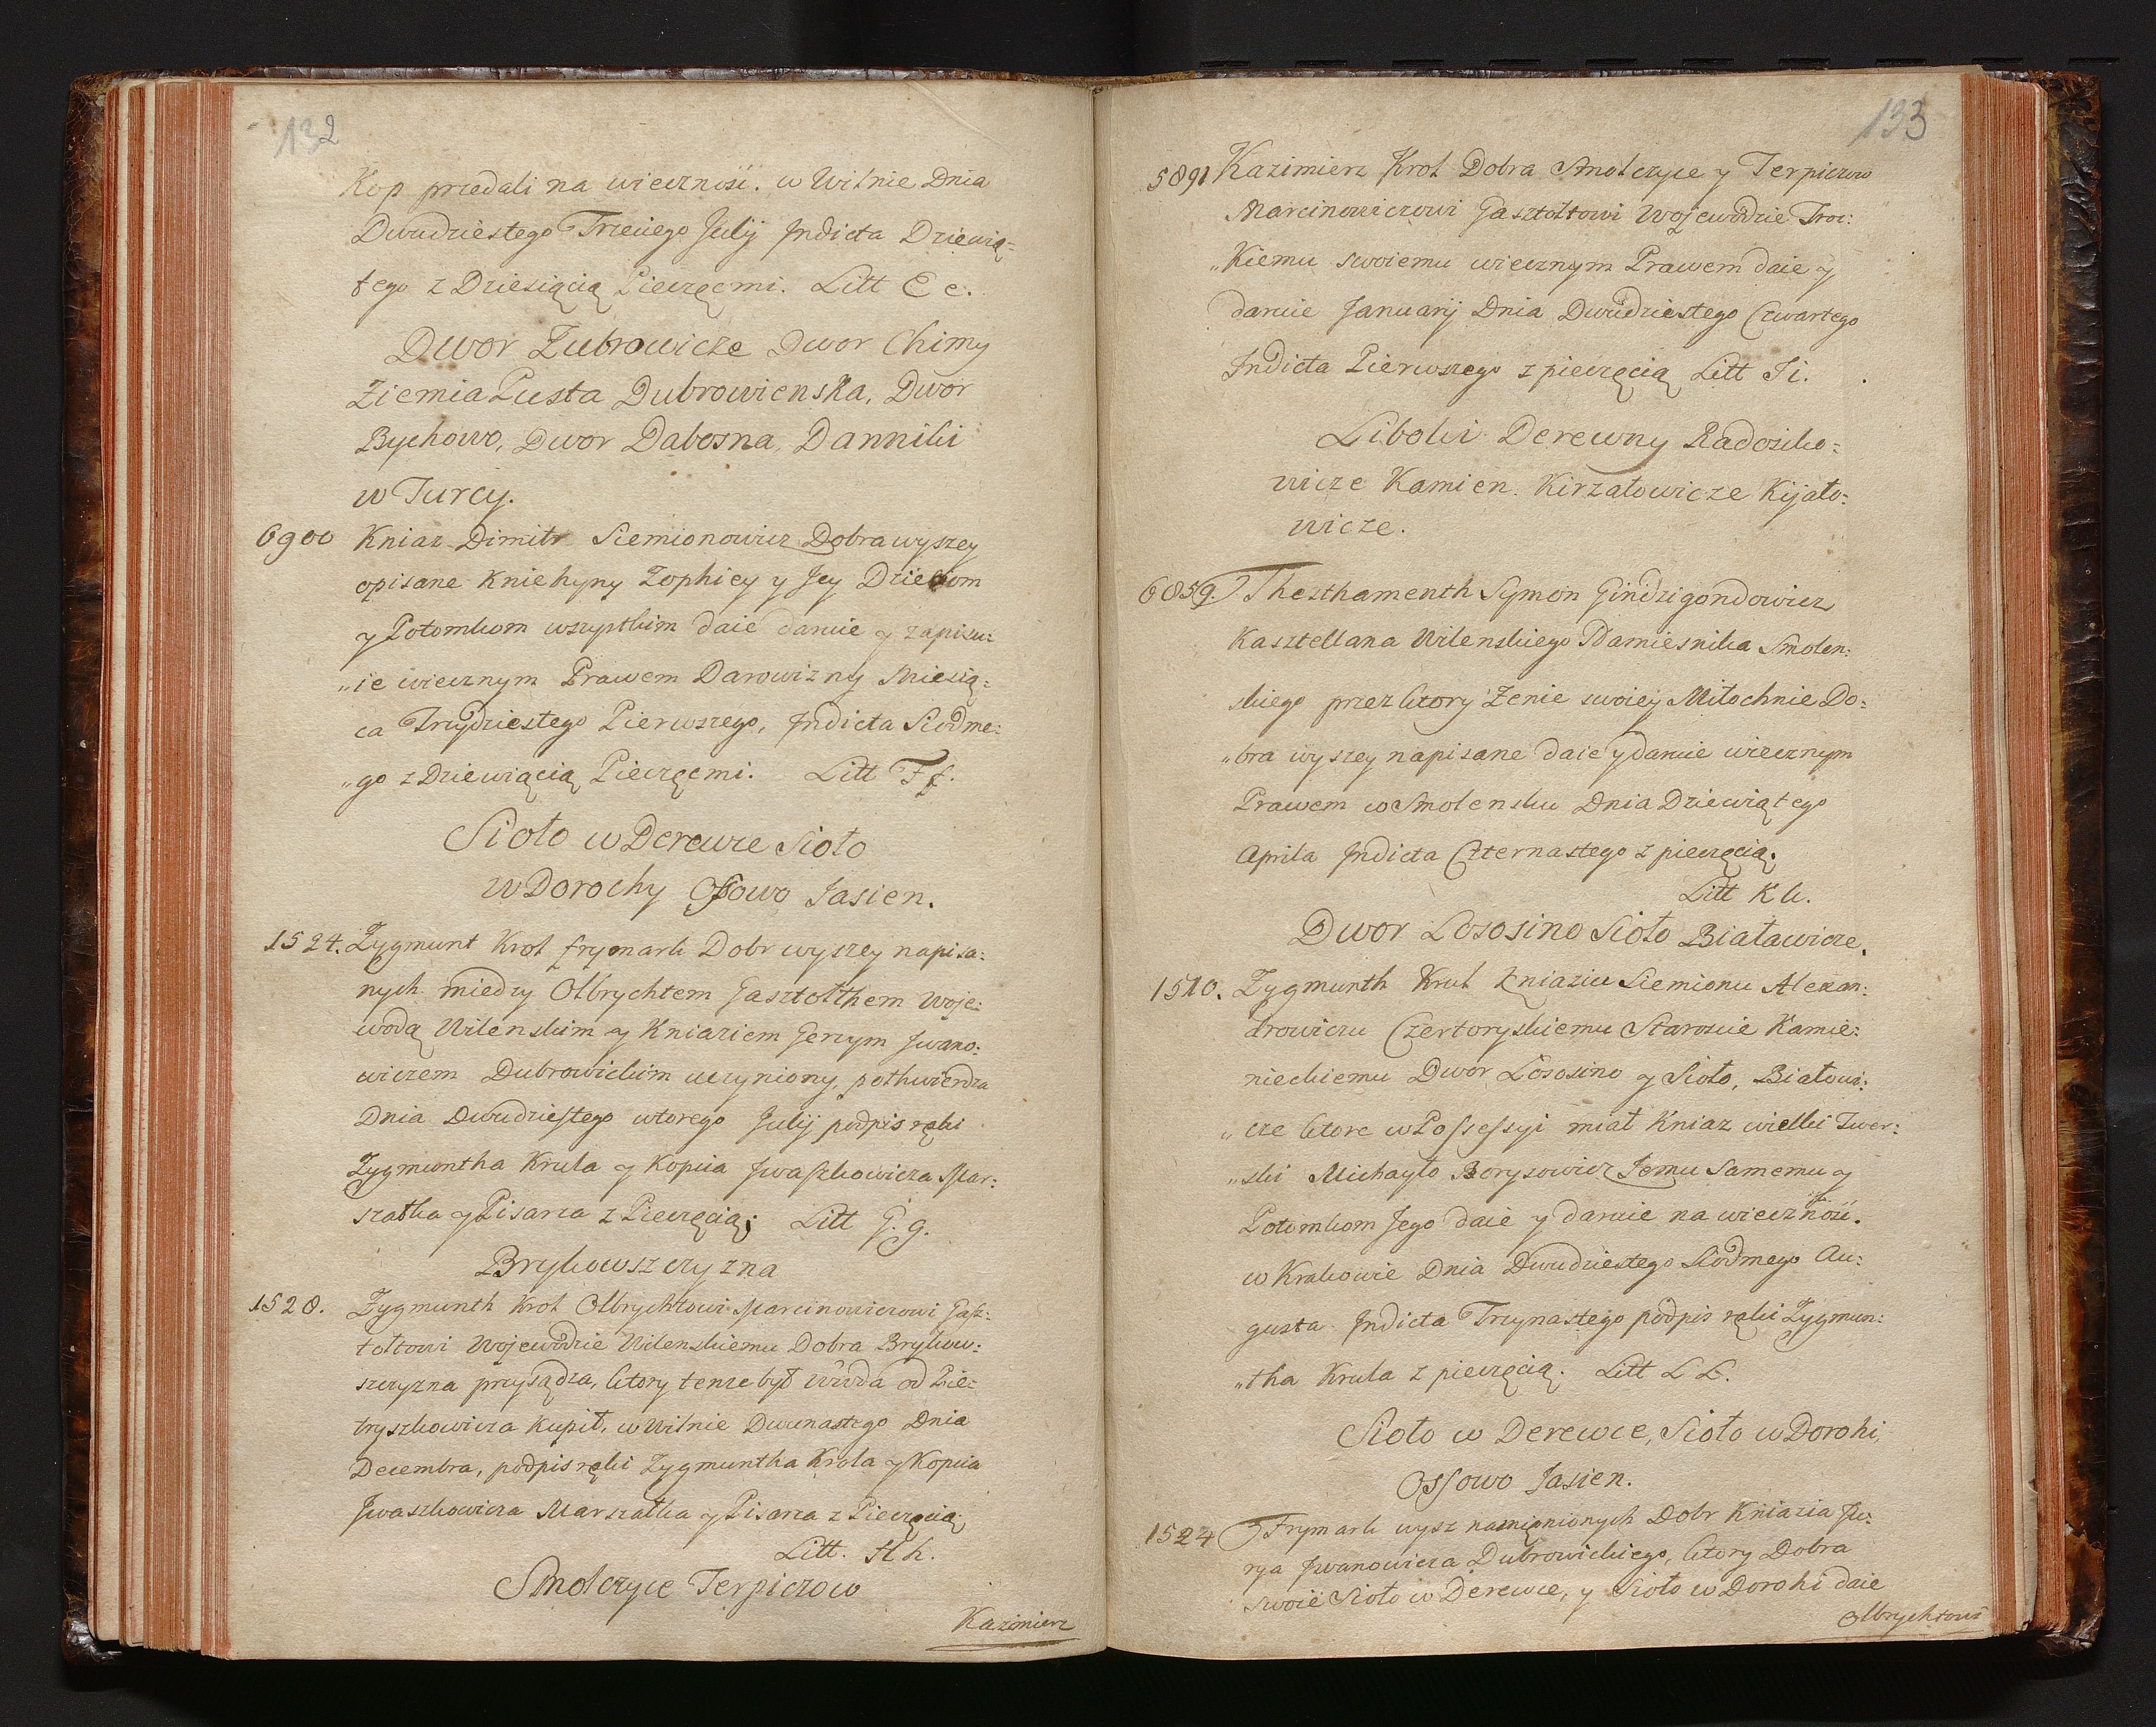 132
Kop przedali na wieczność. w Wilnie Dnia
Dwudziestego Trzeciego Julij Jndicta Dziewią=
tego z Dziesiącią Pieczęcmi. Litt E e.
Dwor Zubrowicze Dwor Chimy
Ziemia Pusta Dubrowienska, Dwor
Bychowo, Dwor Dabosna, Danniki
w Turcy.
6900 Kniaz Dimitr Siemionowicz Dobra wyszey
opisane Kniehyny Zophiey y Jey Dzieciom
y Potomkom wszystkim daie daruie y zapisu=
„ie wiecznym Prawem Darowizny Miesią=
ca Trzydziestego Pierwszego, Jndicta Siodme=
„go z Dziewiącią Pieczęcmi. Litt F f.
Sioło w Derewce Sioło
w Dorochy Ossowo Jasien.
1524. Zygmunt Krol frymark Dobr wyszey napisa=
nych miedzy Olbrychtem Gasztołthem Woje=
wodą Wilenskim y Kniaziem Jerzym Jwano=
wiczem Dubrowickim uczyniony, pothwierdza
Dnia Dwudziestego wtorego Julij podpis ręki
Zygmuntha Krula y Kopcia Jwaszkowicza Mar=
szałka y Pisarza z Pieczęcią; Litt G. g.
Brykowszczyzna
1528. Zygmunth Krol Olbrychtowi Marcinowiczowi Gasz=
tołtowi Wojewodzie Wilenskiemu Dobra Brykow=
szczyzna przysądza, ktory tenze był Wwda od Pie=
tryszkowicza Kupił, w Wilnie Dwunastego Dnia
Decembra, podpis ręki Zygmuntha Krola y Kopcia
Jwaszkowicza Marszałka y Pisarza z Pieczęcią
Litt. H h.
Smolczyce Terpiczow
Kazimierz
133
5891 Kazimierz Krol Dobra Smolczyce y Terpiczow
Marcinowiczowi Gasztołtowi Wojewodzie Troc=
„kiemu swoiemu wiecznym Prawem daie y
daruie Januarij Dnia Dwudziestego Czwartego
Jndicta Pierwszego z pieczęcią Litt Ji.
Liboki Derewny Radoszko=
wicze Kamien. Kirzatowicze Kijato=
wicze.
6859. Thesthamenth Symon Gindzigondowicz
Kasztellana Wilenskiego Namiesnika Smolen=
skiego przez ktory Zenie swoiey Miłochnie Do=
„bra wyszey napisane daie y daruie wiecznym
Prawem w Smolensku Dnia Dziewiątego
Aprila Jndicta Czternastego z pieczęcią.
Litt K k.
Dwor Lososino Sioło Białawicze.
1510. Zygmunth Krul Kniaziu Siemionu Alexan=
drowiczu Czertoryskiemu Staroscie Kamie=
nieckiemu Dwor Lososino y Sioło, Białowi=
„cze ktore w Possessyi miał Kniaz wielki Twer=
„ski Michayło Borysowicz Jemu Samemu y
Potomkom Jego daie y daruie na wieczność.
w Krakowie Dnia Dwudziestego Siodmego Au=
gusta Jndicta Trzynastego podpis ręki Zygmun=
„tha Krula z pieczęcią. Litt L L.
Sioło w Derewce, Sioło w Dorohi,
Ossowo Jasien.
1524 Frymark wysz namienionych Dobr Kniazia Ju=
rya Jwanowicza Dubrowickiego, ktory Dobra
swoie Sioło w Derewce, y Sioło w Dorohi daie
Olbrychtowi